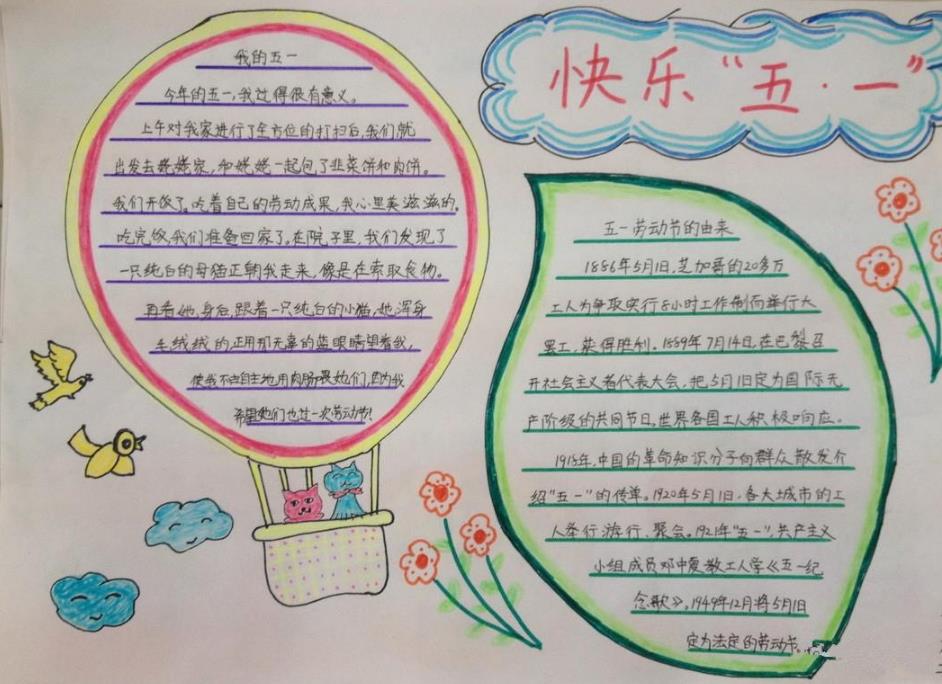 快乐“五·一”
我的五一
今年的五一,我过得很有意义。
上午对我家进行了全方位的打扫后,我们就
出发去姥姥家,和姥姥一起包了韭菜饼和肉饼。
我们开饭了。吃着自己的劳动成果,我心里美滋滋的。
吃完饭,我们准备回家了。在院子里,我们发现了
一只纯白的母猫正朝我走来,像是在索取食物。
再看她,身后跟着一只纯白的小猫,她浑身
毛绒绒的正用那无辜的蓝眼睛望着我,
使我不由自主地用肉肠喂她们,因为我
希望她们也过一次劳动节!
五一劳动节的由来
1886年5月1日,芝加哥的20多万
工人为争取实行8小时工作制而举行大
罢工,获得胜利。1889年7月14日,在巴黎召
开社会主义者代表大会,把5月1日定为国际无
产阶级的共同节日。世界各国工人积极响应。
1915年,中国的革命知识分子向群众散发介
绍“五一”的传单。1920年5月1日,各大城市的工
人举行游行、聚会。1921年“五一”,共产主义
小组成员邓中夏教工人学《五一纪
念歌》。1949年12月将5月1日
定为法定的劳动节。